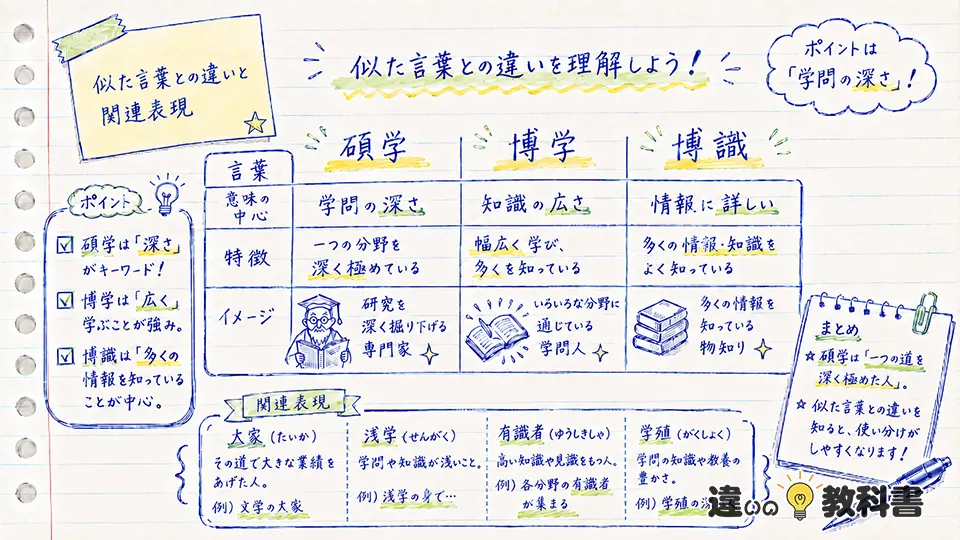 似た言葉との違いと
関連表現
似た言葉との違いを理解しよう!
ポイントは
「学問の深さ」!
言葉
碩学
博学
博識
意味の
中心
学問の深さ
知識の広さ
情報に詳しい
特徴
一つの分野を
深く極めている
幅広く学び、
多くを知っている
多くの情報・知識を
よく知っている
イメージ
研究を
深く掘り下げる
専門家
いろいろな分野に
通じている
学問人
多くの情報を
知っている
物知り
ポイント
碩学は「深さ」
がキーワード!
博学は「広く」
学ぶことが強み。
博識は「多くの
情報を知っている
ことが中心。
まとめ
碩学は「一つの道を
深く極めた人」。
似た言葉との違いを
知ると、使い分けが
しやすくなります!
関連表現
大家(たいか)
その道で大きな業績を
あげた人。
例)文学の大家
浅学(せんがく)
学問や知識が浅いこと。
例)浅学の身で…
有識者(ゆうしきしゃ)
高い知識や見識をもつ人。
例)各分野の有識者
が集まる
学殖(がくしょく)
学問の知識や教養の
豊かさ。
例)学殖の深
違いの教科書